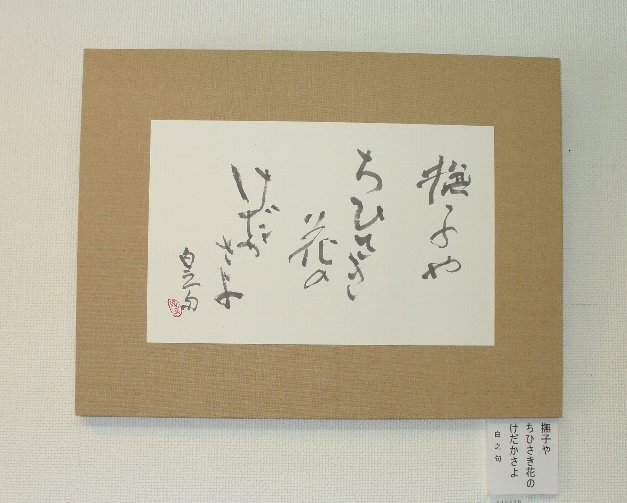 撫子や
ちひさき
花の
けだか
さよ
白之句
撫子や
ちひさき花の
けだかさよ
白之句